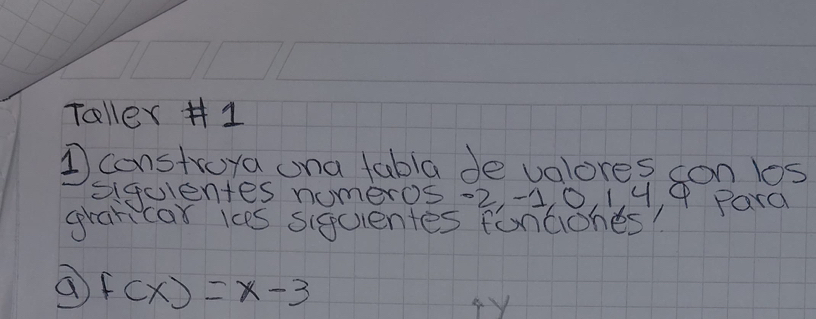 Taller #1
1) construya una tabla de valores con los
siguientes numeros -2, -1, 0, 1, 4, 9 para
graficar las siguientes funciones!
a) f(x) = x - 3
y